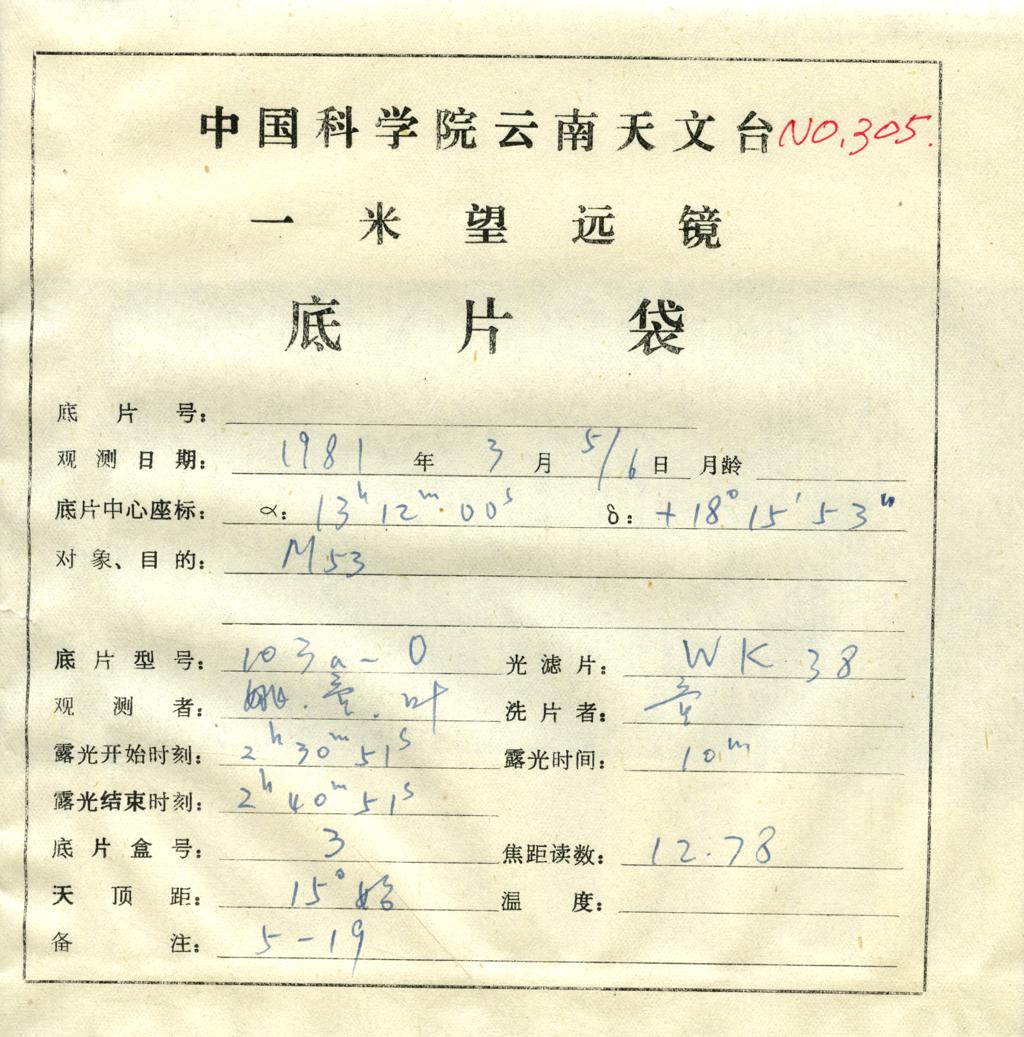 中国科学院云南天文台 NO.305.
一米望远镜
底片袋
底片号:
观测日期: 1981年3月5/6日 月龄
底片中心座标: α: 13h12m00s δ: +18°15′53″
对象、目的: M53
底片型号: 103a-O 光滤片: WK38
观测者: 姚.童.叶 洗片者: 童
露光开始时刻: 2h30m51s 露光时间: 10m
露光结束时刻: 2h40m51s
底片盒号: 3 焦距读数: 12.78
天顶距: 15°始 温度:
备注: 5-19